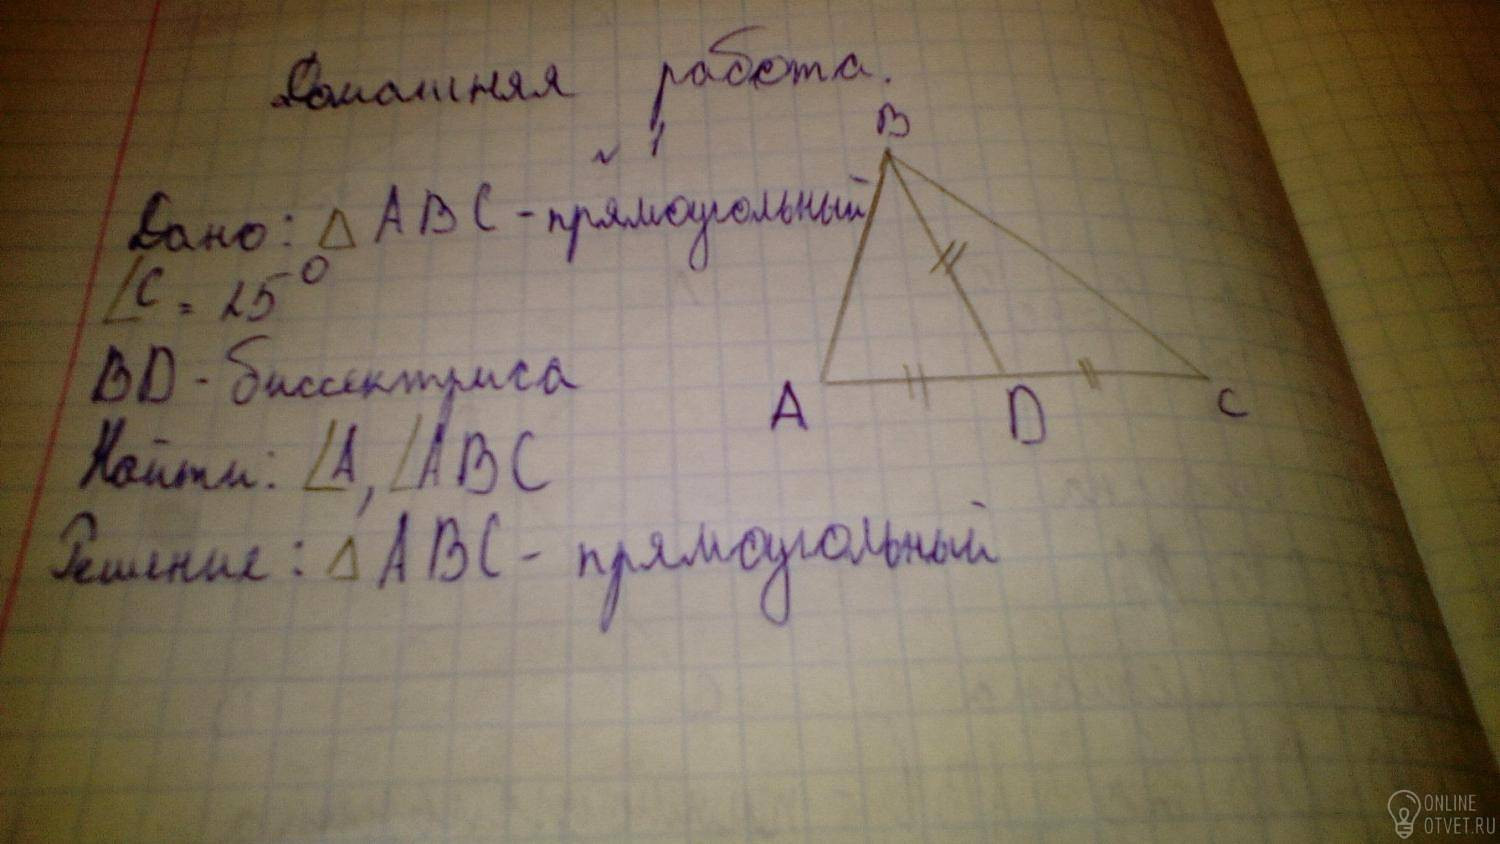 Домашняя работа.
№ 1
Дано: △ ABC - прямоугольный
∠C = 25°
BD - биссектриса
Найти: ∠A, ∠ABC
Решение: △ ABC - прямоугольный
B
A
D
C
ONLINE
OTVET.RU